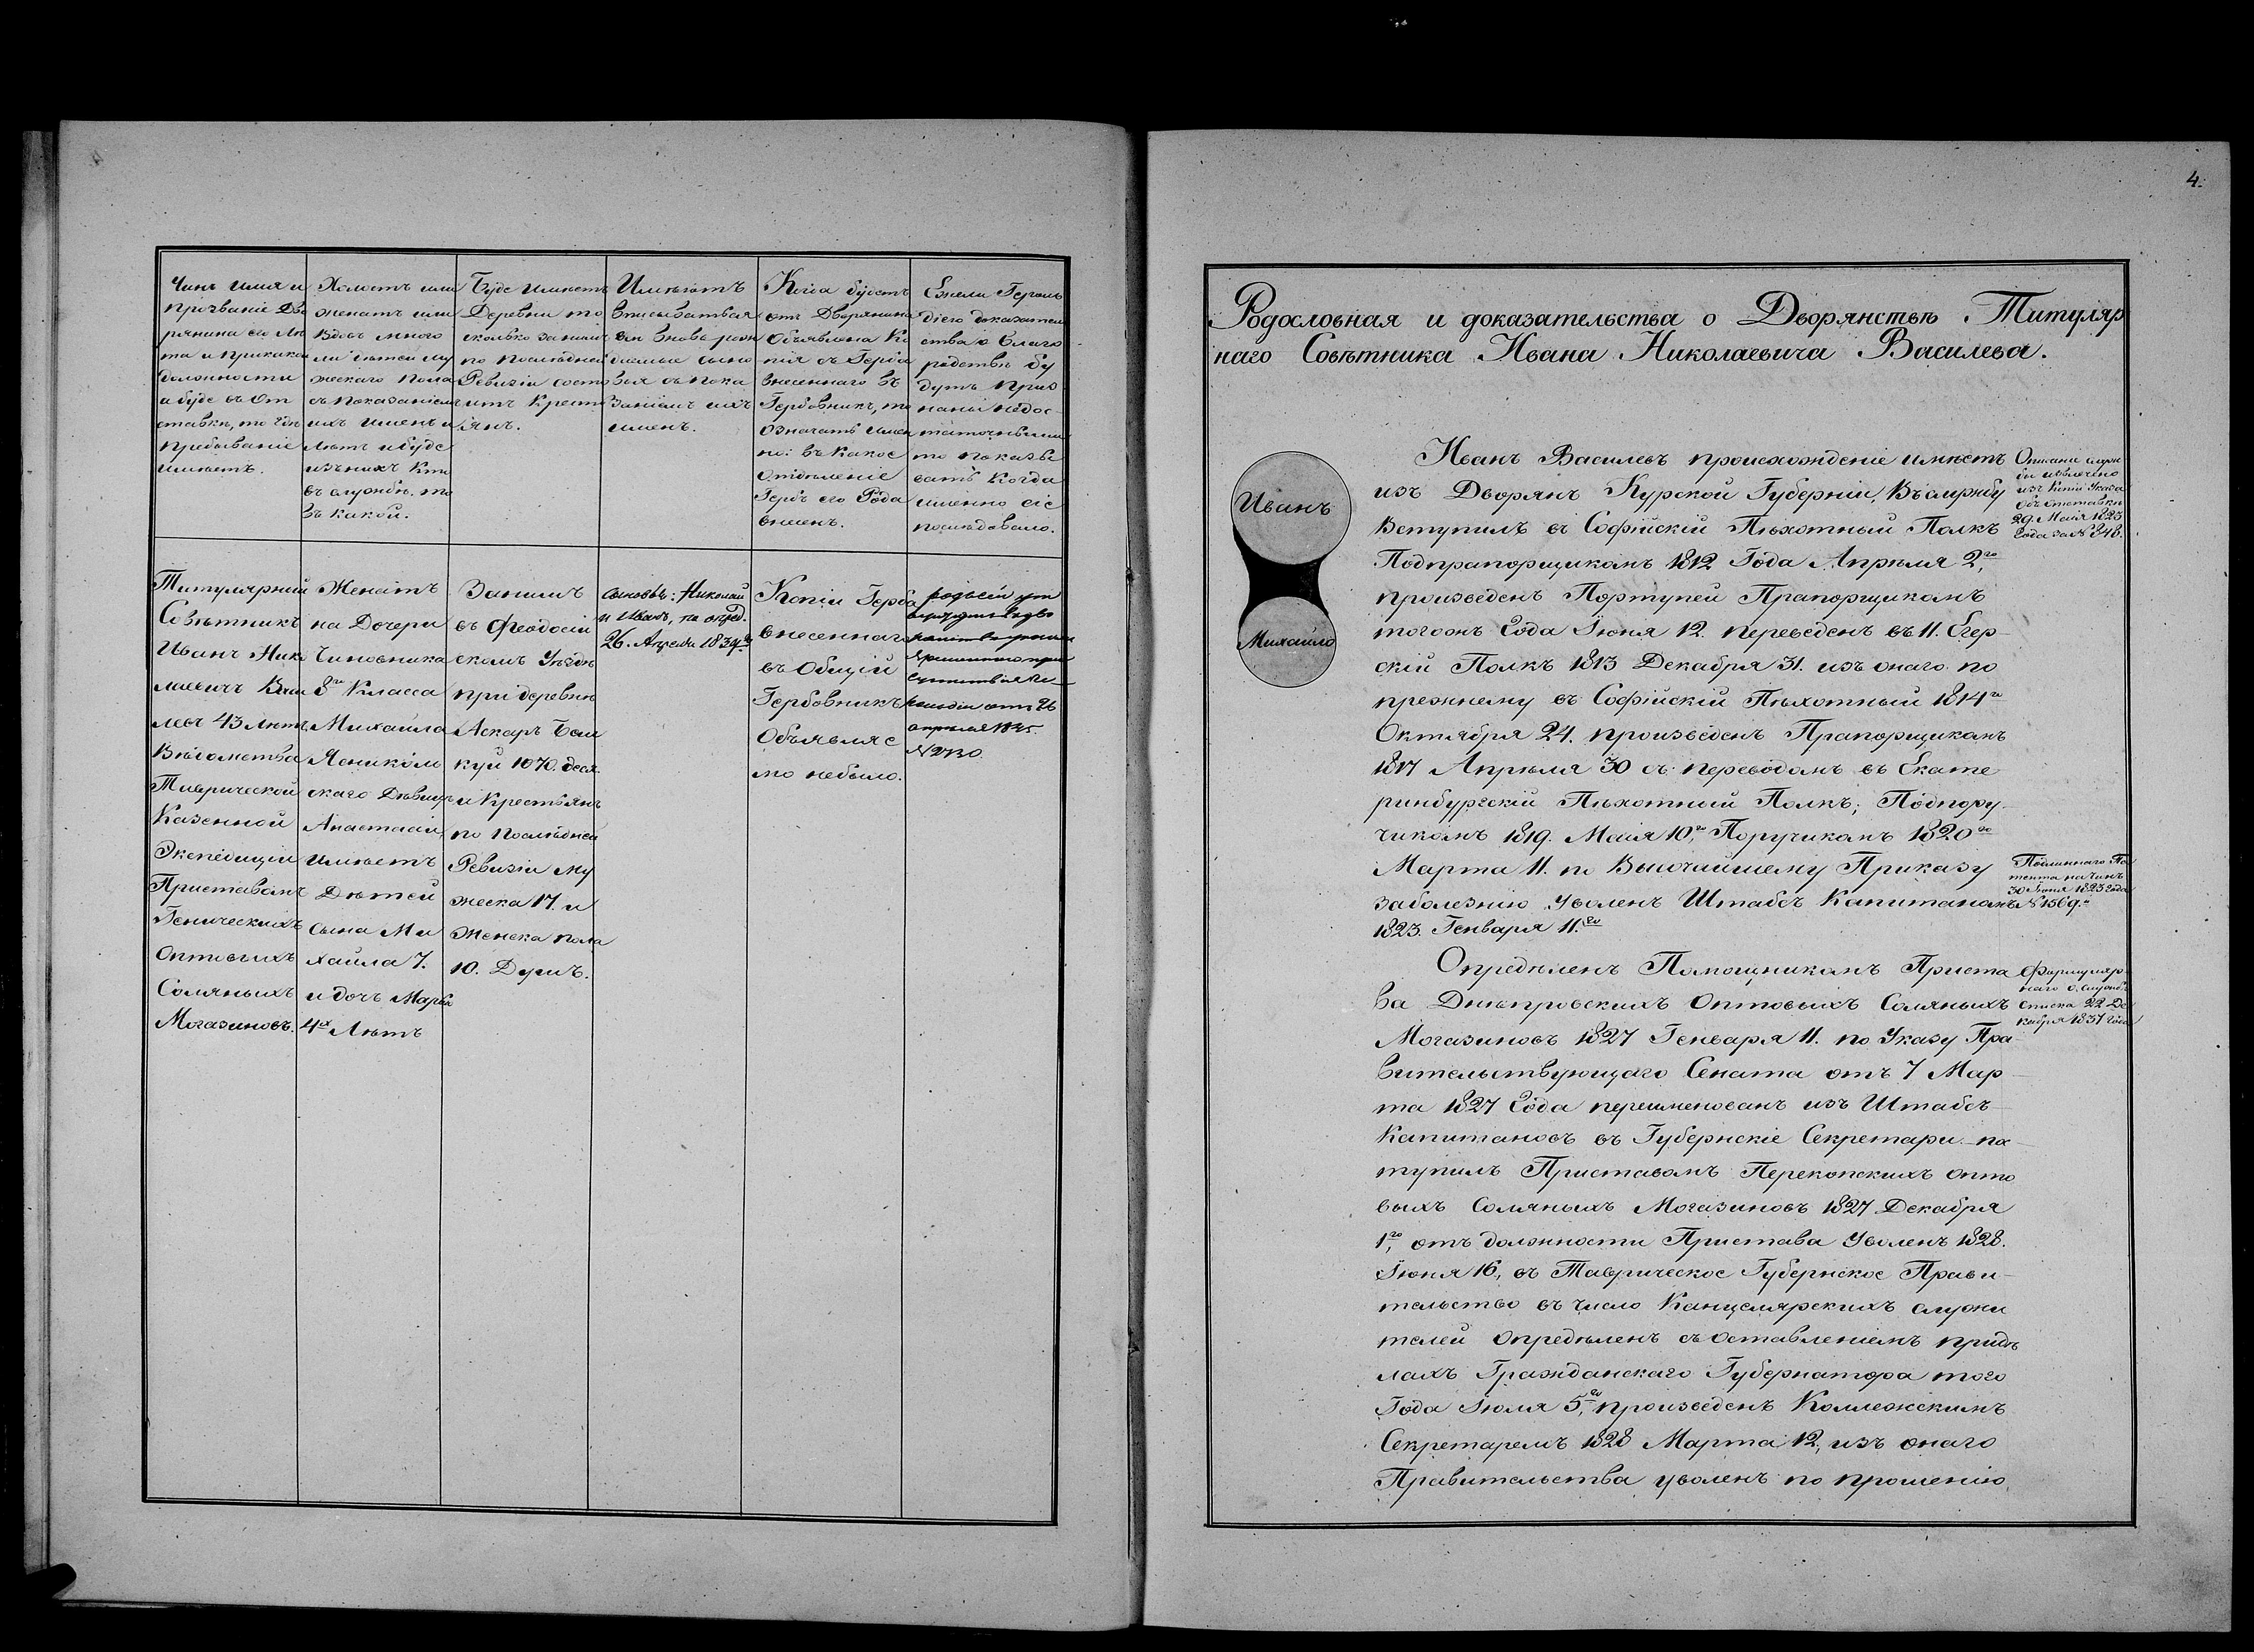 Чинъ имя и
прозваніе Дво
рянина его лѣ
та и прикакой
должности
а буде въ от
ставкѣ, то гдѣ
пребываніе
имѣетъ.
Холостъ или
женатъ или
вдовъ много
ли дѣтей му
жескаго пола
съ показаніемъ
ихъ именъ и
лѣтъ и буде
изъ нихъ кто
въ службѣ. то
въ какой.
Буде имѣетъ
Деревни то
сколько за нимъ
по послѣдней
Ревизіи состо
итъ Крестъ
янъ.
Имѣютъ
вписываться
вновь рож
даемые сыно
вья съ пока
заніемъ ихъ
именъ.
Когда будетъ
отъ Дворянина
Объявлена Ко
пія съ Герба
внесеннаго въ
Гербовникъ, то
означать имен
но: въ какое
отдѣленіе
Гербъ его Рода
внесенъ.
Ежели Героль
діею доказатель
ства о Благо
родствѣ бу
дутъ приз
наны недос-
таточными
то показы
вать когда
именно сіе
послѣдовало.
Титулярный
Совѣтникъ
Иванъ Нико
лаевичъ Васи
левъ 43 лѣтъ
Вѣдомства
Таврической
Казенной
Экспедиціи
Приставомъ
Геническихъ
Оптовыхъ
Соляныхъ
Могазиновъ.
Женатъ
на Дочери
Чиновника
8го Класса
Михайла
Ясниколь
скаго Дѣвицѣ
Анастасіи,
имѣетъ
Дѣтей
сына Ми
хайла 7.
и дочь Марью
4хъ Лѣтъ
Занимъ
въ Феодосій
скомъ Уѣздѣ
при деревнѣ
Аскаръ Беш
куй 1070. деся.
и Крестьянъ
по послѣдней
Ревизіи му
жеска 17. и
Женска пола
10. Душъ.
сыновья: Николай
и Иванъ, по опред.
26. Апрѣля 1834го
Копіи Герба
внесеннаго
въ Общій
Гербовникъ
Объявляе
мо небыло.
отъ 26
апрѣля
№ 2730.
4.
Родословная и доказательства о Дворянствѣ Титуляр
наго Совѣтника Ивана Николаевича Василева.
Иванъ
Михайло
Иванъ Василевъ происхожденіе имѣетъ
изъ Дворянъ Курской Губерніи, Въ службу
Вступилъ въ Софійскій Пѣхотный Полкъ
Подпрапорщикомъ 1812 Года Апрѣля 2го,
произведенъ Портупей Прапорщикомъ
тогожъ Года Іюня 12. переведенъ въ 11. Егер-
скій Полкъ 1813 Декабря 31. изъ онаго по
прежнему въ Софійскій Пѣхотный 1814го
Октября 24. произведенъ Прапорщикомъ
1817 Апрѣля 30 съ переводомъ въ Екате
ринбургскій Пѣхотный Полкъ; Подпору-
чикомъ 1819. Маія 10го, Поручикомъ 1820го
Марта 11. по Высочайшему Приказу
заболезнію уволенъ Штабсъ Капитаномъ
1823. Генваря 11.го
Описаніе служ
бы извлечено
изъ Копіи Указа
объ отставкѣ
29. Маія 1823
Года за № 848.
Подлиннаго Па
тента на чинъ
30 Іюня 1823 Года
№ 1569.
Опредѣленъ Помощникомъ Приста
ва Днѣпровскихъ Оптовыхъ Соляныхъ
Могазиновъ 1827 Генваря 11. по Указу Пра-
вительствующаго Сената отъ 7 Мар-
та 1827 Года переименованъ изъ Штабсъ-
Капитановъ въ Губернскіе Секретари. пос-
тупилъ Приставомъ Перекопскихъ опто
выхъ Соляныхъ Могазиновъ 1827 Декабря
1го, отъ должности Пристава Уволенъ 1828.
Іюня 16, въ Таврическое Губернское Прави-
тельство въ число Канцелярскихъ служи
телей опредѣленъ съ оставленіемъ придѣ
лахъ Гражданскаго Губернатора того
Года Іюля 5,го произведенъ Коллежскимъ
Секретаремъ 1828 Марта 12, изъ онаго
Правительства уволенъ по прошенію
Формуляр-
наго о службѣ
списка 22 Де
кабря 1837 Года